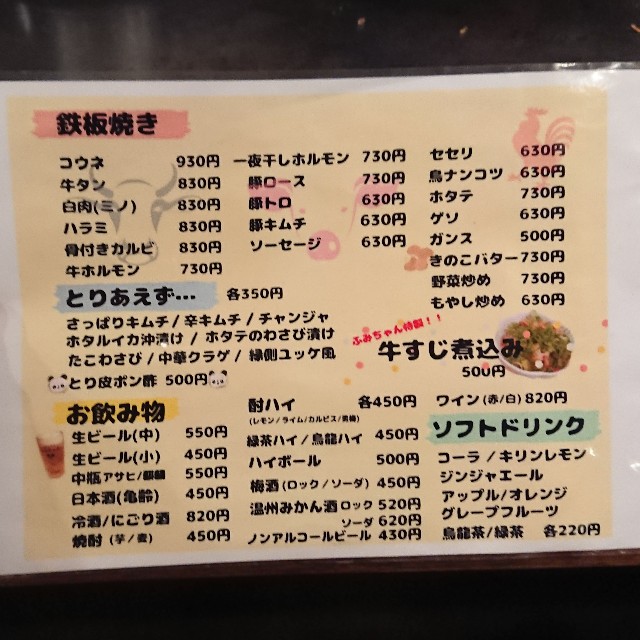 鉄板焼き
コウネ 930円
牛タン 830円
白肉(ミノ) 830円
ハラミ 830円
骨付きカルビ 830円
牛ホルモン 730円
一夜干しホルモン 730円
豚ロース 730円
豚トロ 630円
豚キムチ 630円
ソーセージ 630円
セセリ 630円
鳥ナンコツ 630円
ホタテ 730円
ゲソ 630円
ガンス 500円
きのこバター 730円
野菜炒め 730円
もやし炒め 630円
とりあえず… 各350円
さっぱりキムチ / 辛キムチ / チャンジャ
ホタルイカ沖漬け / ホタテのわさび漬け
たこわさび / 中華クラゲ / 縁側ユッケ風
とり皮ポン酢 500円
ふみちゃん特製！！
牛すじ煮込み
500円
お飲み物
生ビール(中) 550円
生ビール(小) 450円
中瓶 アサヒ/麒麟 550円
日本酒(亀齢) 450円
冷酒/にごり酒 820円
焼酎 (芋/麦) 450円
酎ハイ 各450円
(レモン/ライム/カルピス/黒梅)
緑茶ハイ / 烏龍ハイ 450円
ハイボール 500円
梅酒 (ロック / ソーダ) 450円
温州みかん酒 ロック 520円
ソーダ 620円
ノンアルコールビール 430円
ワイン (赤/白) 820円
ソフトドリンク
コーラ / キリンレモン
ジンジャエール
アップル/オレンジ
グレープフルーツ
烏龍茶/緑茶 各220円